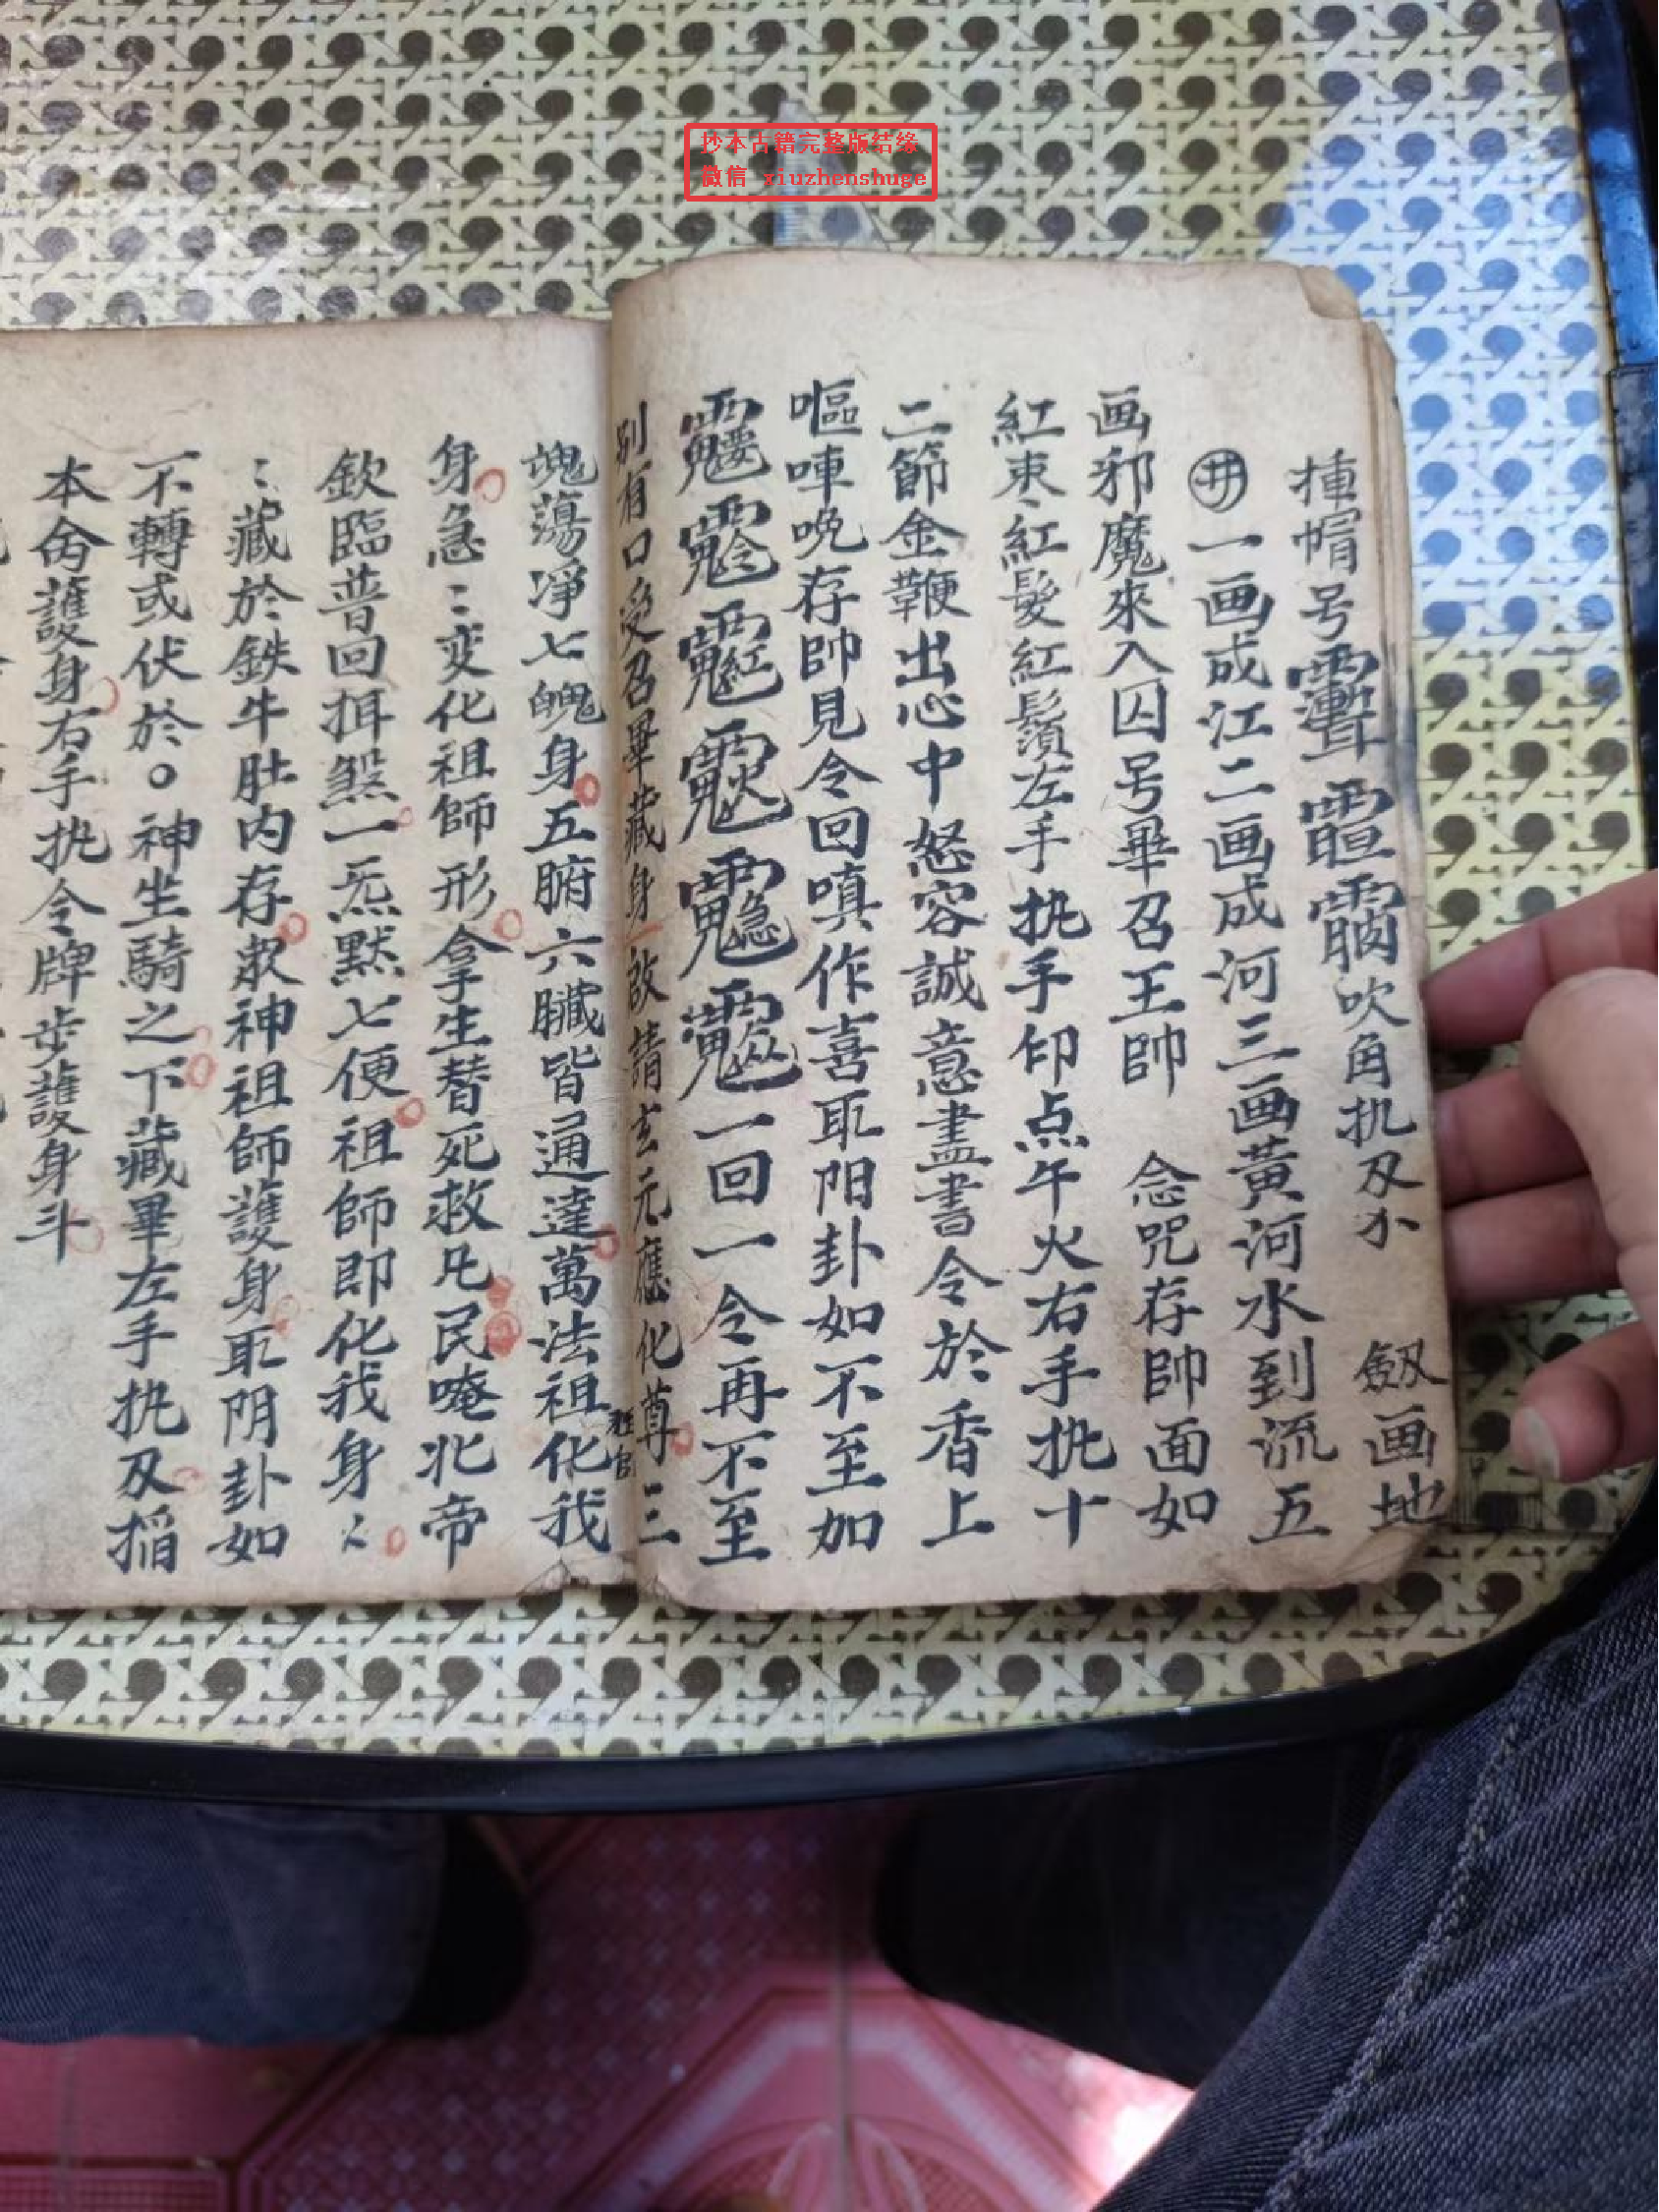 抄本古籍完整版结缘
微信 xiuzhenshuge
帽号 吹角 及 画地
井 一画成江二画成河三画黄河水到流五
画邪魔來入囚号畢召王帥 念咒存帥面如
紅枣紅髮紅鬚左手执手印点午火右手执十
二節金鞭出心中怒容誠意盡書令於香上
嘔唓唍存帥見令回嗔作喜取阳卦如不至加
一回一令再不至
別有口受召畢藏身 啟請玄元應化尊 三
魂蕩凈七魄身五腑六臟皆通達萬法祖化我
身急〻变化祖師形拿生替死救凡民唵北帝
欽臨普回揖煞一炁默七便祖師即化我身〻
〻藏於鉄牛肚内存眾神祖師護身取阴卦如
不轉或伏於○神坐騎之下藏畢左手执及
本命護身右手执令牌步護身斗